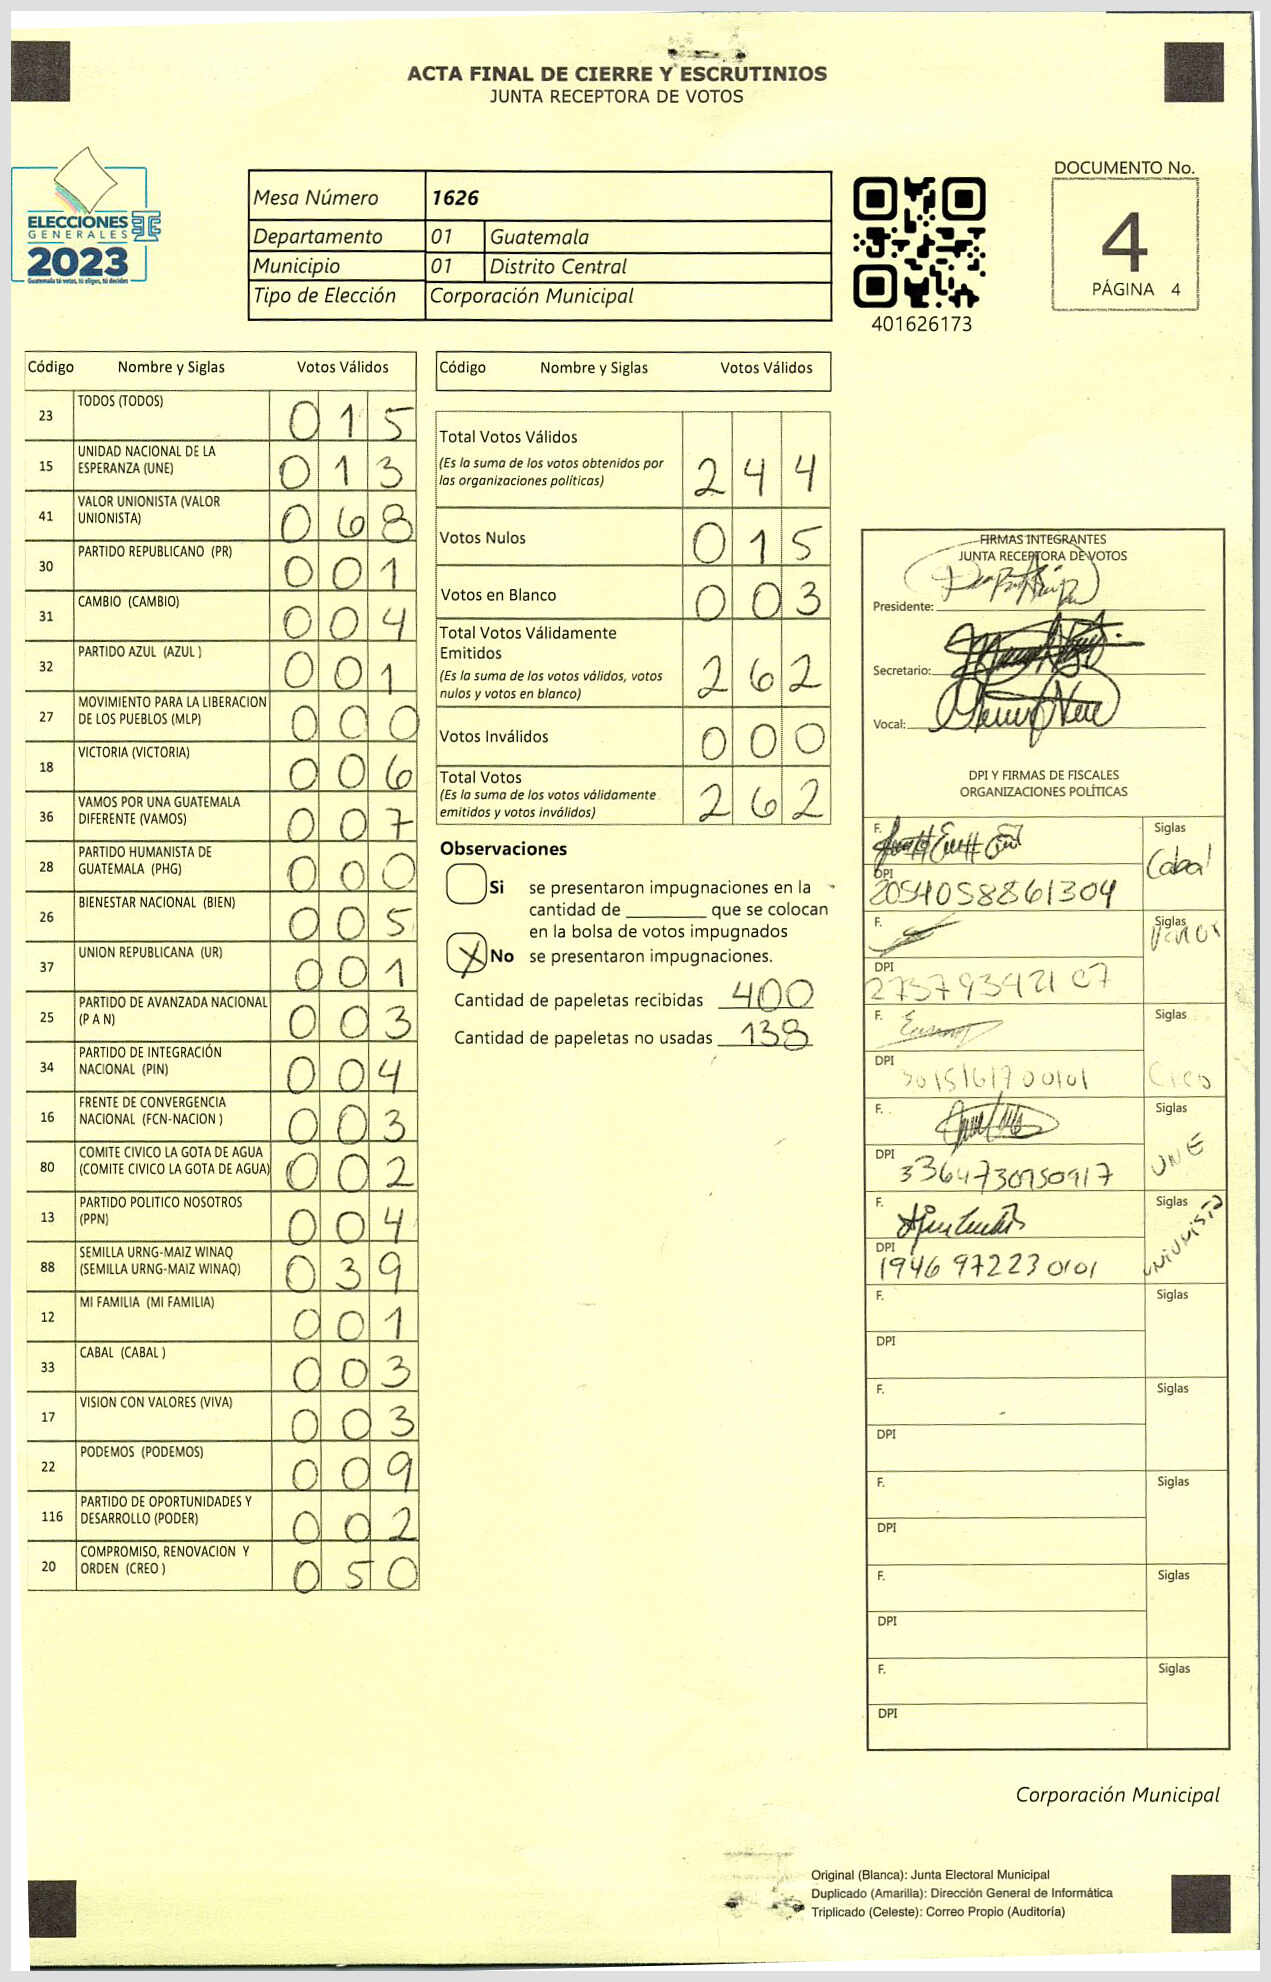 ACTA FINAL DE CIERRE Y ESCRUTINIOS
JUNTA RECEPTORA DE VOTOS
ELECCIONES
GENERALES
2023
Guatemala tú votas, tú eliges, tú decides
Mesa Número 1626
Departamento 01 Guatemala
Municipio 01 Distrito Central
Tipo de Elección Corporación Municipal
401626173
DOCUMENTO No.
4
PÁGINA 4
Código Nombre y Siglas Votos Válidos
23 TODOS (TODOS) 0 1 5
15 UNIDAD NACIONAL DE LA ESPERANZA (UNE) 0 1 3
41 VALOR UNIONISTA (VALOR UNIONISTA) 0 6 8
30 PARTIDO REPUBLICANO (PR) 0 0 1
31 CAMBIO (CAMBIO) 0 0 4
32 PARTIDO AZUL (AZUL ) 0 0 1
27 MOVIMIENTO PARA LA LIBERACION DE LOS PUEBLOS (MLP) 0 0 0
18 VICTORIA (VICTORIA) 0 0 6
36 VAMOS POR UNA GUATEMALA DIFERENTE (VAMOS) 0 0 7
28 PARTIDO HUMANISTA DE GUATEMALA (PHG) 0 0 0
26 BIENESTAR NACIONAL (BIEN) 0 0 5
37 UNION REPUBLICANA (UR) 0 0 1
25 PARTIDO DE AVANZADA NACIONAL (P A N) 0 0 3
34 PARTIDO DE INTEGRACIÓN NACIONAL (PIN) 0 0 4
16 FRENTE DE CONVERGENCIA NACIONAL (FCN-NACION ) 0 0 3
80 COMITE CIVICO LA GOTA DE AGUA (COMITE CIVICO LA GOTA DE AGUA) 0 0 2
13 PARTIDO POLITICO NOSOTROS (PPN) 0 0 4
88 SEMILLA URNG-MAIZ WINAQ (SEMILLA URNG-MAIZ WINAQ) 0 3 9
12 MI FAMILIA (MI FAMILIA) 0 0 1
33 CABAL (CABAL ) 0 0 3
17 VISION CON VALORES (VIVA) 0 0 3
22 PODEMOS (PODEMOS) 0 0 9
116 PARTIDO DE OPORTUNIDADES Y DESARROLLO (PODER) 0 0 2
20 COMPROMISO, RENOVACION Y ORDEN (CREO ) 0 5 0
Código Nombre y Siglas Votos Válidos
Total Votos Válidos 2 4 4
(Es la suma de los votos obtenidos por
las organizaciones políticas)
Votos Nulos 0 1 5
Votos en Blanco 0 0 3
Total Votos Válidamente
Emitidos 2 6 2
(Es la suma de los votos válidos, votos
nulos y votos en blanco)
Votos Inválidos 0 0 0
Total Votos 2 6 2
(Es la suma de los votos válidamente
emitidos y votos inválidos)
Observaciones
Si se presentaron impugnaciones en la
cantidad de ________ que se colocan
en la bolsa de votos impugnados
X No se presentaron impugnaciones.
Cantidad de papeletas recibidas 400
Cantidad de papeletas no usadas 138
FIRMAS INTEGRANTES
JUNTA RECEPTORA DE VOTOS
Presidente:
Secretario:
Vocal:
DPI Y FIRMAS DE FISCALES
ORGANIZACIONES POLÍTICAS
F. Siglas
Cabal
DPI
2054058861304
F. Siglas
DPI
F. Siglas
DPI
3015161700101
Creo
F. Siglas
DPI
3364730950917
UNE
F. Siglas
DPI
1946 97223 0101
UNIONISTA
F. Siglas
DPI
F. Siglas
DPI
F. Siglas
DPI
F. Siglas
DPI
F. Siglas
DPI
Corporación Municipal
Original (Blanca): Junta Electoral Municipal
Duplicado (Amarilla): Dirección General de Informática
Triplicado (Celeste): Correo Propio (Auditoría)